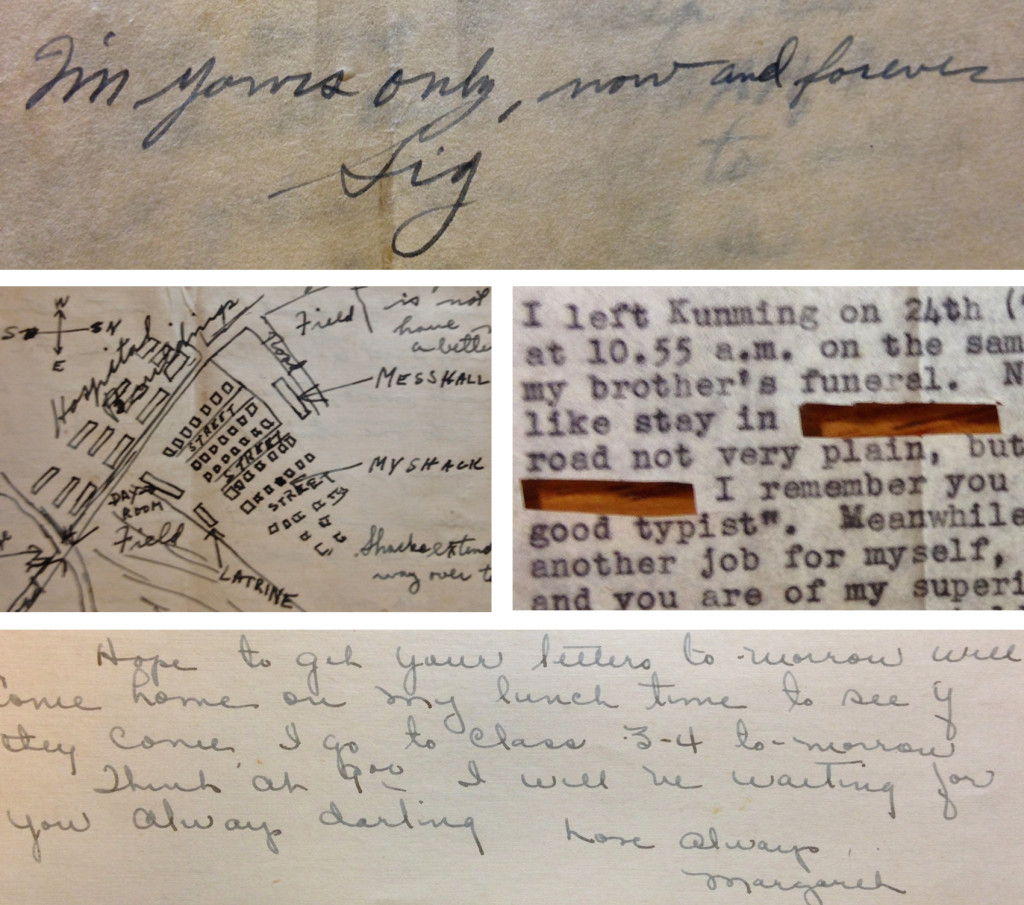 I'm yours only, now and forever
Sig
to
W
S N
E
Hospital
Buildings
Field
Road
is not
have
a bette
MESSHALL
STREET
STREET
STREET
MY SHACK
DAY
ROOM
Field
LATRINE
Shacks extend
way over t
I left Kunming on 24th (
at 10.55 a.m. on the sam
my brother's funeral. N
like stay in
road not very plain, but
I remember you
good typist". Meanwhile
another job for myself,
and you are of my superi
Hope to get your letters to-morrow will
come home on my lunch time to see if
they come. I go to class 3-4 to-morrow
Think at 9:00 I will be waiting for
you always darling
Love always
Margaret